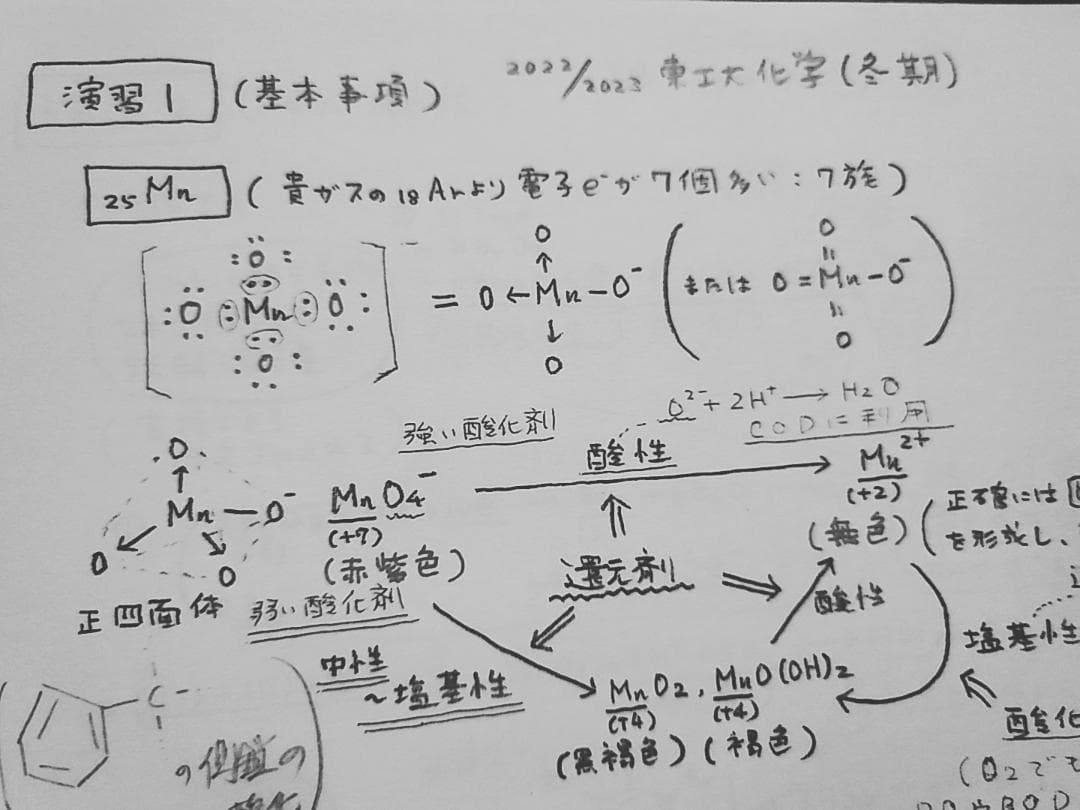 演習1 (基本事項) 2022/2023 東工大化学(冬期)
25Mn (貴ガスの18Arより電子e⁻が7個多い:7族)
[:Ö: :O: Mn :O: :O:]⁻ = O←Mn–O⁻ (または O=Mn–O⁻)
O O O O
O²⁻+2H⁺→H₂O
強い酸化剤 酸性 CODに利用
O Mn–O⁻ O O
MnO₄⁻ Mn²⁺
(+7) (+2)
(赤紫色) (無色) (正確には
を形成し、
還元剤
正四面体 弱い酸化剤 酸性
塩基性
中性
~塩基性 MnO₂, MnO(OH)₂
(+4) (+4)
酸化
C–
(黒褐色) (褐色)
(O₂でも
の側鎖の
酸化